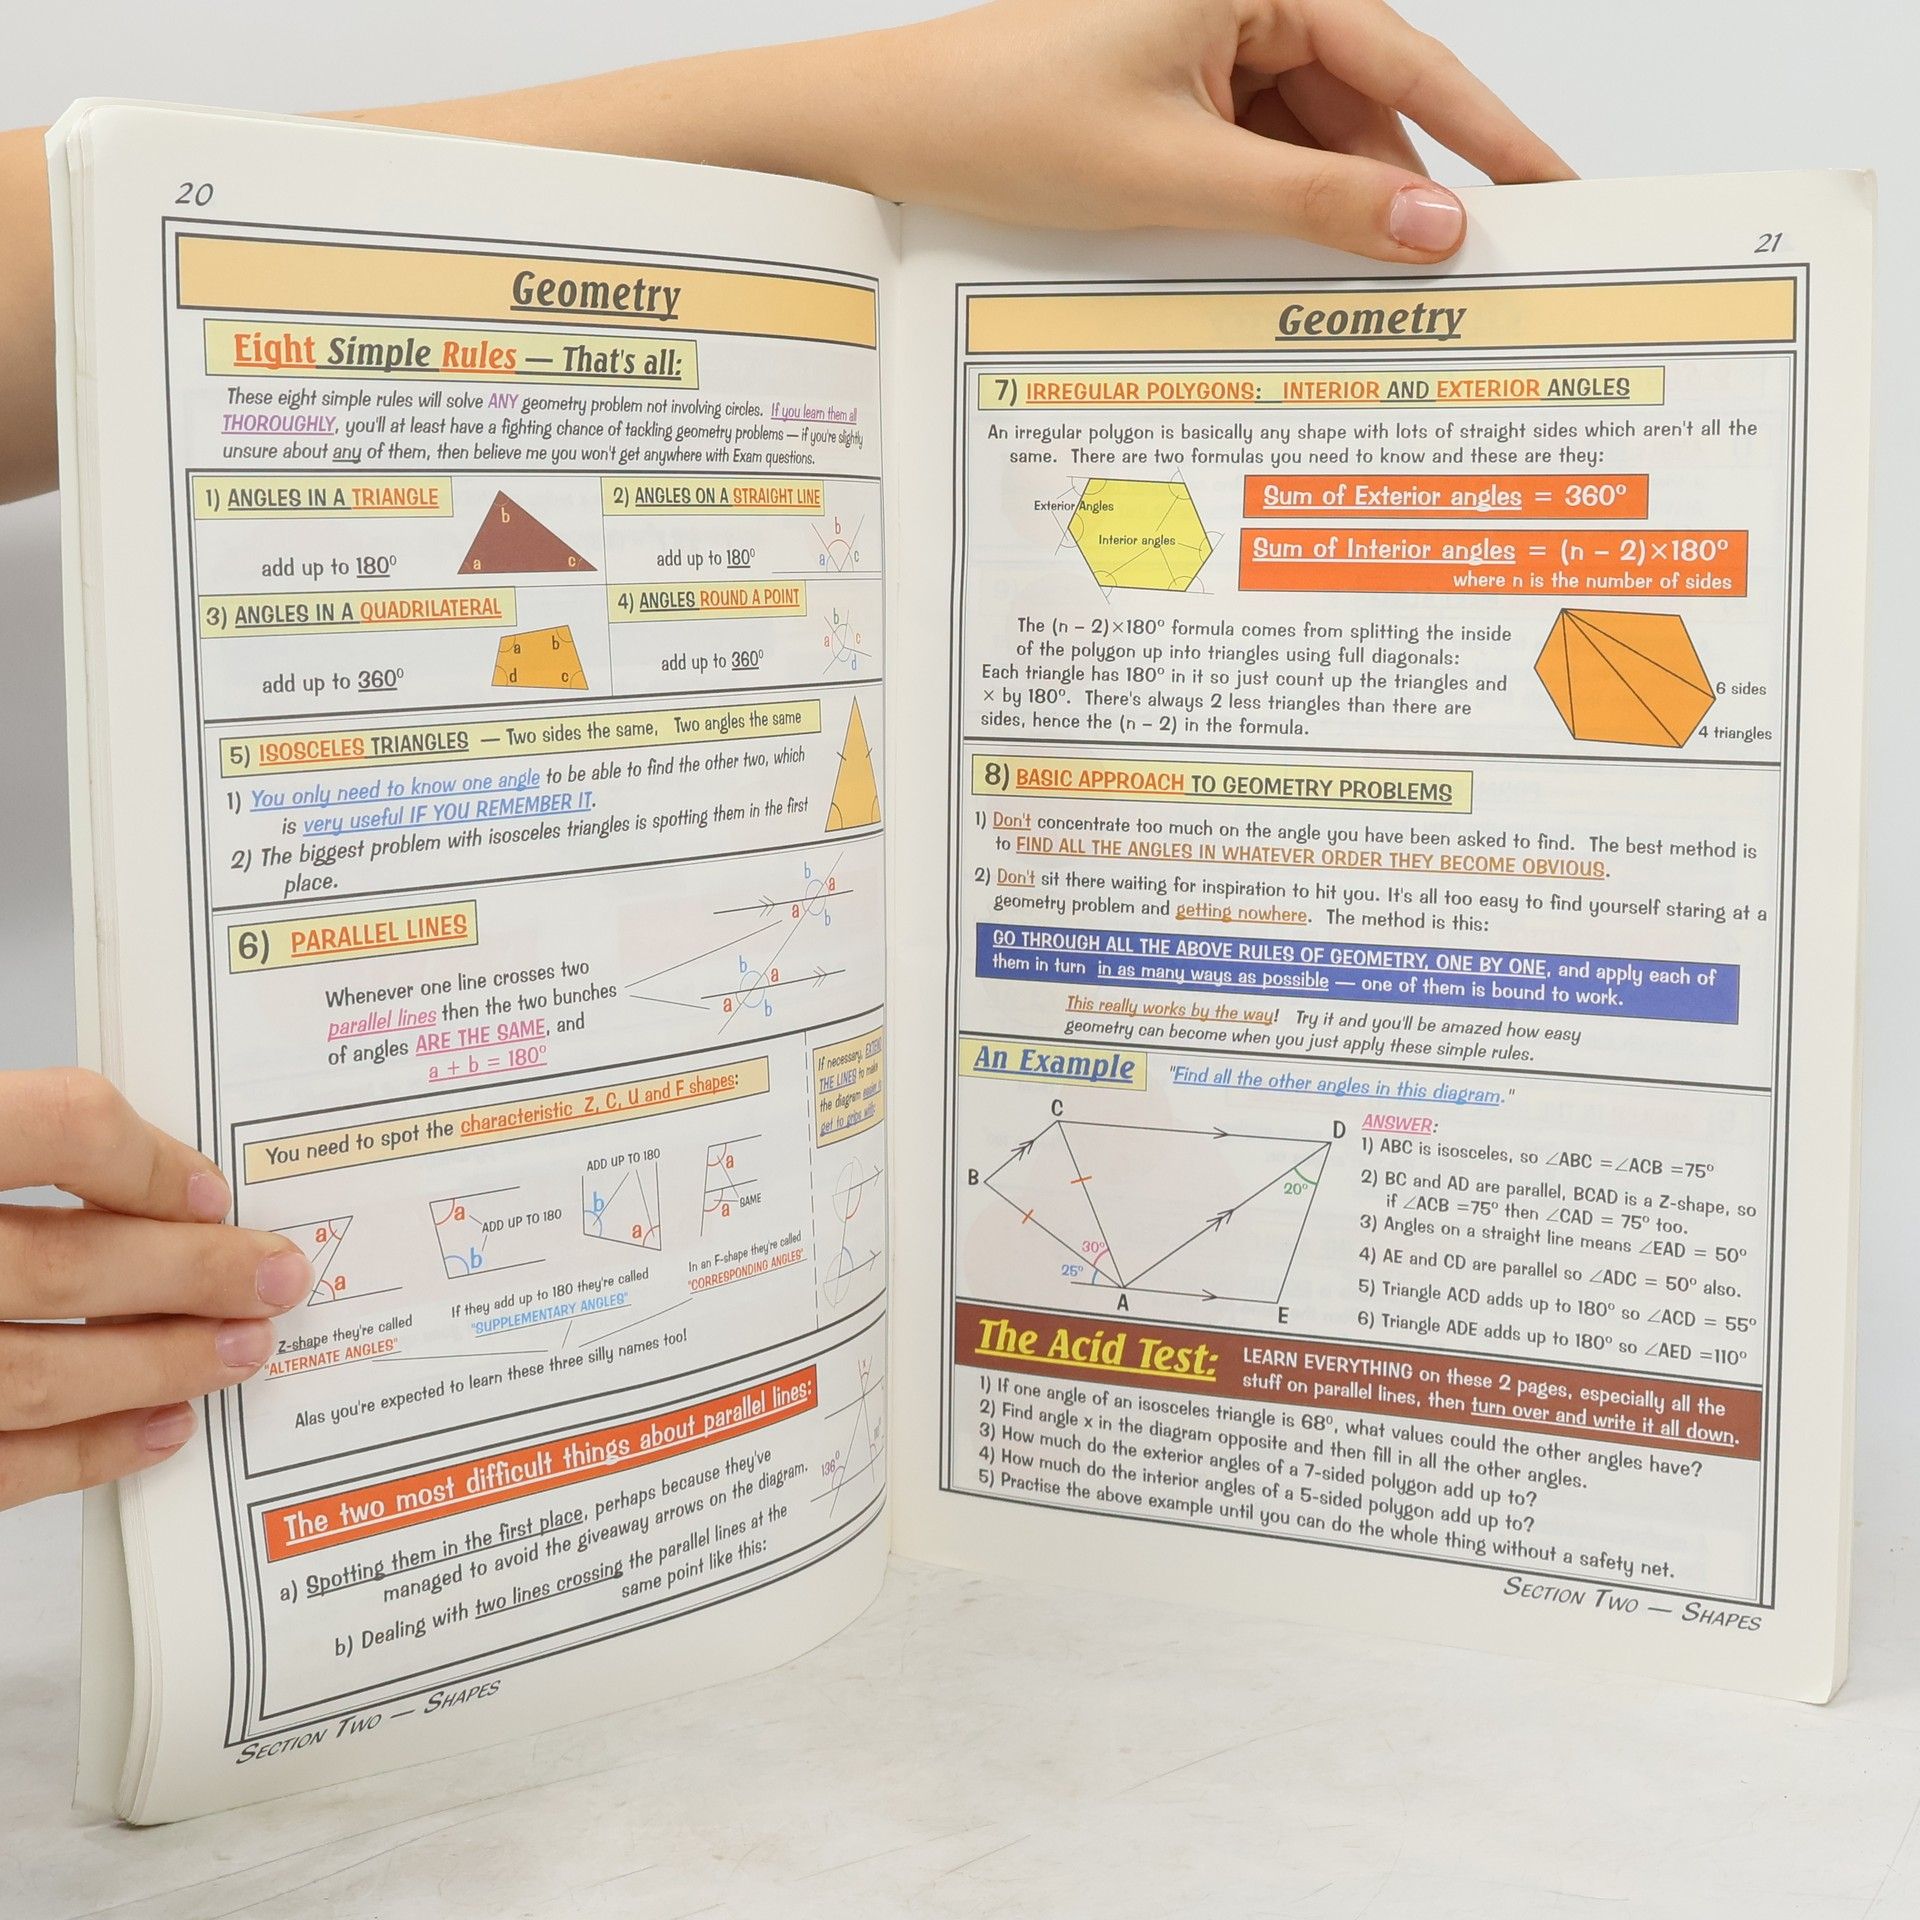 20
Geometry
Eight Simple Rules — That's all:
These eight simple rules will solve ANY geometry problem not involving circles. If you learn them all
THOROUGHLY, you'll at least have a fighting chance of tackling geometry problems — if you're slightly
unsure about any of them, then believe me you won't get anywhere with Exam questions.
1) ANGLES IN A TRIANGLE
add up to 180º
b
a
c
2) ANGLES ON A STRAIGHT LINE
add up to 180º
b
a
c
3) ANGLES IN A QUADRILATERAL
add up to 360º
a
b
d
c
4) ANGLES ROUND A POINT
add up to 360º
b
a
c
d
5) ISOSCELES TRIANGLES — Two sides the same, Two angles the same
1) You only need to know one angle to be able to find the other two, which
is very useful IF YOU REMEMBER IT.
2) The biggest problem with isosceles triangles is spotting them in the first
place.
6) PARALLEL LINES
Whenever one line crosses two
parallel lines then the two bunches
of angles ARE THE SAME, and
a + b = 180º
b
a
a
b
b
a
a
b
You need to spot the characteristic Z, C, U and F shapes:
If necessary, EXTEND
THE LINES to make
the diagram easier to
get to grips with:
a
a
Z-shape they're called
"ALTERNATE ANGLES"
a
ADD UP TO 180
b
ADD UP TO 180
b
a
If they add up to 180 they're called
"SUPPLEMENTARY ANGLES"
a
SAME
a
In an F-shape they're called
"CORRESPONDING ANGLES"
Alas you're expected to learn these three silly names too!
The two most difficult things about parallel lines:
a) Spotting them in the first place, perhaps because they've
managed to avoid the giveaway arrows on the diagram.
b) Dealing with two lines crossing the parallel lines at the
same point like this:
x
136º
SECTION TWO — SHAPES
21
Geometry
7) IRREGULAR POLYGONS: INTERIOR AND EXTERIOR ANGLES
An irregular polygon is basically any shape with lots of straight sides which aren't all the
same. There are two formulas you need to know and these are they:
Exterior Angles
Interior angles
Sum of Exterior angles = 360º
Sum of Interior angles = (n – 2)×180º
where n is the number of sides
The (n – 2)×180º formula comes from splitting the inside
of the polygon up into triangles using full diagonals:
Each triangle has 180º in it so just count up the triangles and
× by 180º. There's always 2 less triangles than there are
sides, hence the (n – 2) in the formula.
6 sides
4 triangles
8) BASIC APPROACH TO GEOMETRY PROBLEMS
1) Don't concentrate too much on the angle you have been asked to find. The best method is
to FIND ALL THE ANGLES IN WHATEVER ORDER THEY BECOME OBVIOUS.
2) Don't sit there waiting for inspiration to hit you. It's all too easy to find yourself staring at a
geometry problem and getting nowhere. The method is this:
GO THROUGH ALL THE ABOVE RULES OF GEOMETRY, ONE BY ONE, and apply each of
them in turn in as many ways as possible — one of them is bound to work.
This really works by the way! Try it and you'll be amazed how easy
geometry can become when you just apply these simple rules.
An Example
"Find all the other angles in this diagram."
C
D
B
20º
30º
25º
A
E
ANSWER:
1) ABC is isosceles, so ∠ABC =∠ACB =75º
2) BC and AD are parallel, BCAD is a Z-shape, so
if ∠ACB =75º then ∠CAD = 75º too.
3) Angles on a straight line means ∠EAD = 50º
4) AE and CD are parallel so ∠ADC = 50º also.
5) Triangle ACD adds up to 180º so ∠ACD = 55º
6) Triangle ADE adds up to 180º so ∠AED =110º
The Acid Test:
LEARN EVERYTHING on these 2 pages, especially all the
stuff on parallel lines, then turn over and write it all down.
1) If one angle of an isosceles triangle is 68º, what values could the other angles have?
2) Find angle x in the diagram opposite and then fill in all the other angles.
3) How much do the exterior angles of a 7-sided polygon add up to?
4) How much do the interior angles of a 5-sided polygon add up to?
5) Practise the above example until you can do the whole thing without a safety net.
SECTION TWO — SHAPES